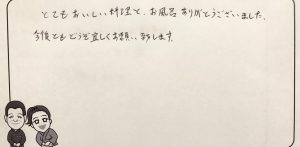 とてもおいしい料理と、お風呂ありがとうございました。
今後ともどうぞ宜しくお願い致します。